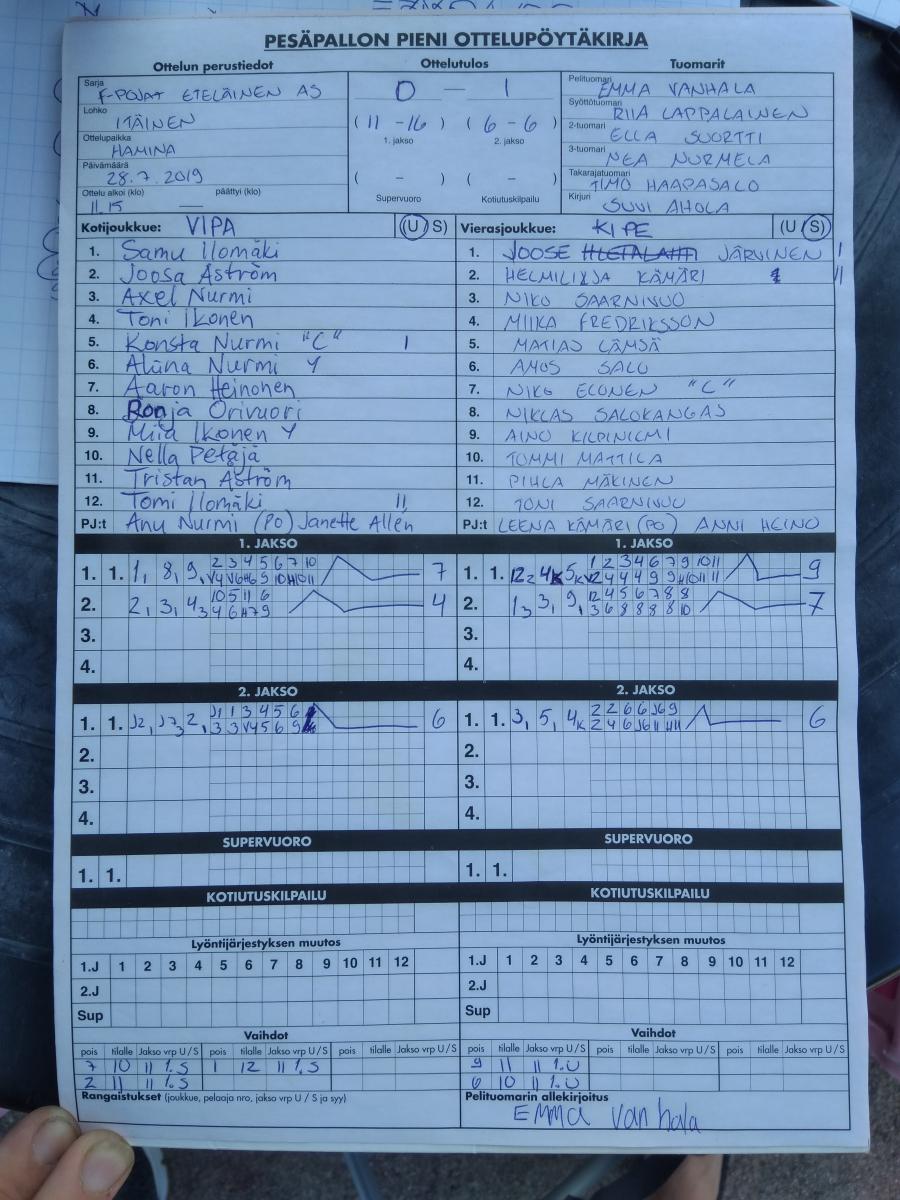 PESÄPALLON PIENI OTTELUPÖYTÄKIRJA
Ottelun perustiedot
Sarja F-POJAT ETELÄINEN AS
Lohko ITÄINEN
Ottelupaikka HAMINA
Päivämäärä 28.7.2019
Ottelu alkoi (klo) päättyi (klo)
11.15 —
Ottelutulos
0 — 1
( 11 - 16 ) ( 6 - 6 )
1. jakso 2. jakso
( - ) ( - )
Supervuoro Kotiutuskilpailu
Tuomarit
Pelituomari EMMA VANHALA
Syöttötuomari RIIA LAPPALAINEN
2-tuomari ELLA SUORTTI
3-tuomari NEA NURMELA
Takarajatuomari TIMO HAAPASALO
Kirjuri SUVI AHOLA
Kotijoukkue: VIPA (U S)
1. Samu Ilomäki
2. Joosa Åström
3. Axel Nurmi
4. Toni Ikonen
5. Konsta Nurmi "C" I
6. Alina Nurmi Y
7. Aaron Heinonen
8. Ronja Orivuori
9. Miia Ikonen Y
10. Nella Petäjä
11. Tristan Åström
12. Tomi Ilomäki II
PJ:t Anu Nurmi (PO) Janette Allén
Vierasjoukkue: KIPE (U S)
1. JOOSE JÄRVINEN I
2. HELMILILJA KÄMÄRI II
3. NIKO SAARNIVUO
4. MIIKA FREDRIKSSON
5. MATIAS LÄMSÄ
6. AMOS SALO
7. NIKO ELONEN "C"
8. NIKLAS SALOKANGAS
9. AINO KILPINIEMI
10. TOMMI MATTILA
11. PIHLA MÄKINEN
12. TONI SAARNIVUO
PJ:t LEENA KÄMÄRI (PO) ANNI HEINO
1. JAKSO
1. 1. 1, 8, 9, 2 3 4 5 6 7 10 7
2. 2, 3, 4, 10 5 11 6 4
3.
4.
1. JAKSO
1. 1. 1 2 3 4 6 7 9 10 11 9
2. 1, 3, 9, 12 4 5 6 7 8 8 7
3 6 8 8 8 8 10
3.
4.
2. JAKSO
1. 1. 6
2.
3.
4.
2. JAKSO
1. 1. 3, 5, 4K 6
2.
3.
4.
SUPERVUORO
1. 1.
SUPERVUORO
1. 1.
KOTIUTUSKILPAILU
KOTIUTUSKILPAILU
Lyöntijärjestyksen muutos
1.J 1 2 3 4 5 6 7 8 9 10 11 12
2.J
Sup
Lyöntijärjestyksen muutos
1.J 1 2 3 4 5 6 7 8 9 10 11 12
2.J
Sup
Vaihdot
pois tilalle Jakso vrp U/S pois tilalle Jakso vrp U/S pois tilalle Jakso vrp U/S
7 10 II 1.S 1 12 II 1.S
2 11 II 1.S
Vaihdot
pois tilalle Jakso vrp U/S pois tilalle Jakso vrp U/S pois tilalle Jakso vrp U/S
9 11 II 1.U
6 10 II 1.U
Rangaistukset (joukkue, pelaaja nro, jakso vrp U / S ja syy)
Pelituomarin allekirjoitus
Emma Vanhala